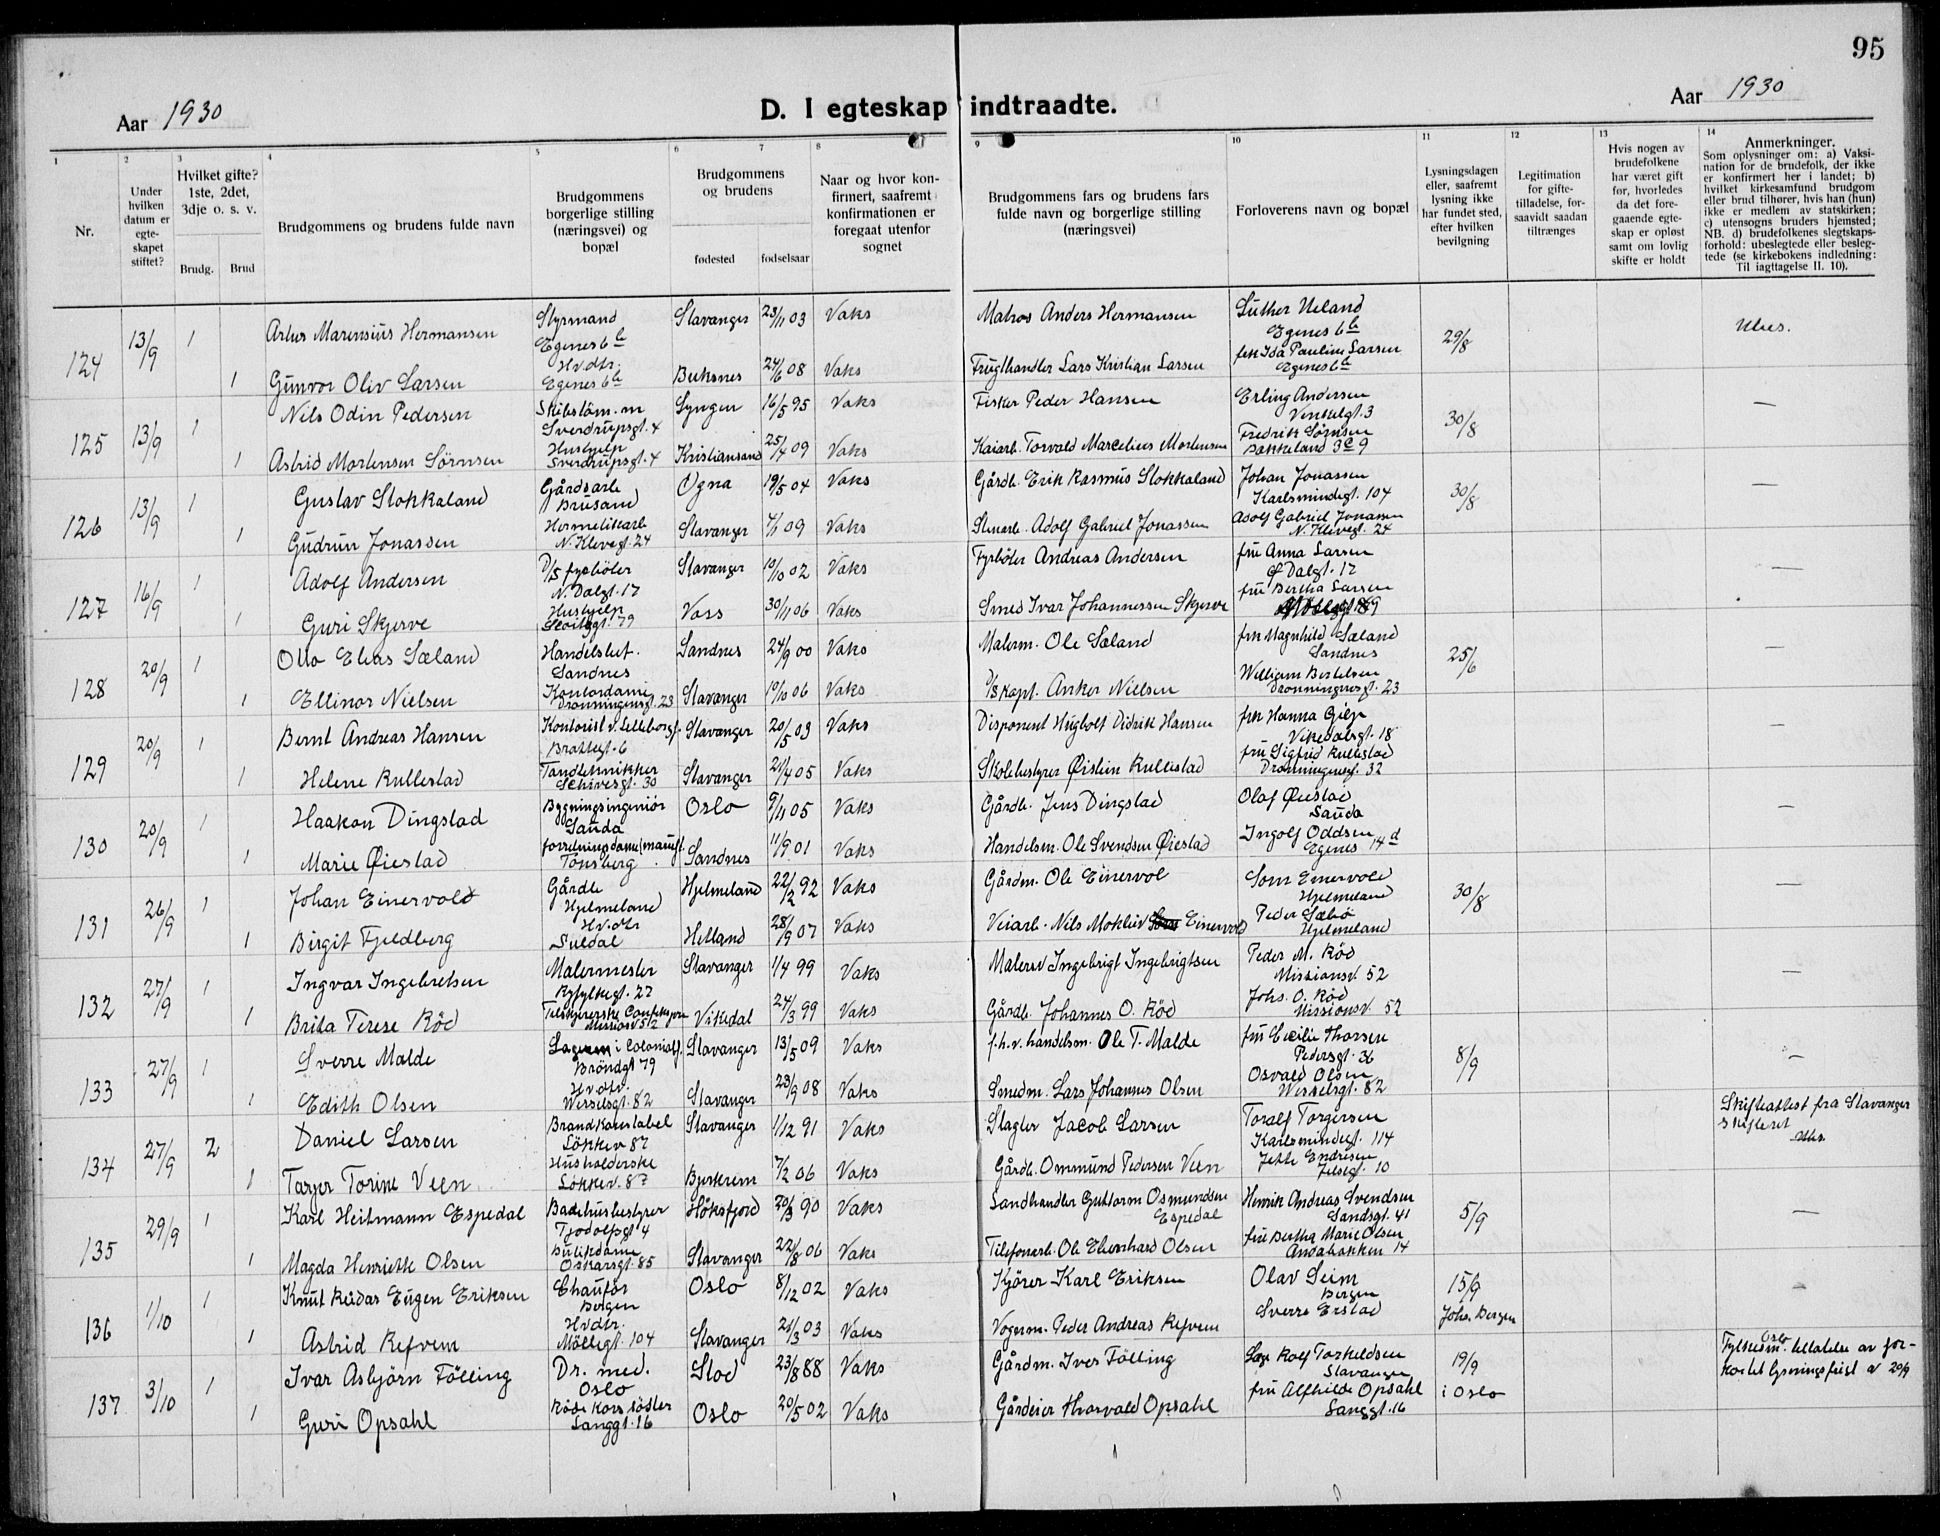 95
Aar 1930
D. I egteskap indtraadte.
Aar 1930
1
2
3
4
5
6
7
8
9
10
11
12
13
14
Nr.
Under hvilken datum er egte-skapet stiftet?
Hvilket gifte? 1ste, 2det, 3dje o. s. v.
Brudg. Brud
Brudgommens og brudens fulde navn
Brudgommens borgerlige stilling (næringsvei) og bopæl
Brudgommens og brudens
fødested fødselsaar
Naar og hvor kon-firmert, saafremt konfirmationen er foregaat utenfor sognet
Brudgommens fars og brudens fars fulde navn og borgerlige stilling (næringsvei)
Forloverens navn og bopæl
Lysningsdagen eller, saafremt lysning ikke har fundet sted, efter hvilken bevilgning
Legitimation for gifte-tilladelse, for-saavidt saadan tiltrænges
Hvis nogen av brudefolkene har været gift før, hvorledes da det fore-gaaende egte-skap er opløst samt om lovlig skifte er holdt
Anmerkninger.
Som oplysninger om: a) Vaksi-nation for de brudefolk, der ikke er konfirmert her i landet; b) hvilket kirkesamfund brudgom eller brud tilhører, hvis han (hun) ikke er medlem av statskirken; c) utensogns bruders hjemsted; NB. d) brudefolkenes slegtskaps-forhold: ubeslegtede eller besleg-tede (se kirkebokens indledning: Til iagttagelse II. 10).
124 13/9 1 Marensius Hermansen Styrmand Egenes 6b Stavanger 23/11 03 Vaks Matros Anders Hermansen Luther Ueland Egenes 6b 29/8 Ubes.
1 Gunvor Oliv Larsen Hvdtr. Egenes 6b Buksnes 24/6 08 Vaks Frugthandler Lars Kristian Larsen frk Ida Pauline Larsen Egenes 6b
125 13/9 1 Nils Odin Pedersen Skibstøm.m Sverdrupsgt. 4 Lyngen 16/5 95 Vaks Fisker Peder Hansen Erling Andersen 30/8 —
1 Astrid Mortensen Sörnsen Hushjelp Sverdrupsgt. 4 Kristiansand 25/4 09 Vaks Kaiarb. Torvald Marcelius Mortensen Fredrik Sörnsen Bakkeland
126 13/9 1 Gustav Stokkaland Gårdsarb Brusand Ogna 19/5 04 Vaks Gårdb. Erik Rasmus Stokkaland Johan Jonassen Karlsmindegt. 104 30/8 —
1 Gudrun Jonassen Hermetikarb N. Klevegt. 24 Stavanger 7/1 09 Vaks Stenarb. Adolf Gabriel Jonassen Adolf Gabriel Jonassen N. Klevegt. 24
127 16/9 1 Adolf Andersen D/S fyrböter N. Dalgt. 17 Stavanger 10/10 02 Vaks Fyrböter Andreas Andersen fru Anna Larsen Ø Dalgt. 17 —
1 Guri Skjerve Hushjelp 79 Voss 30/11 06 Vaks Smed Ivar Johannessen Skjerve fru Bertha Larsen
128 20/9 1 Otto Elias Sæland Handelsbet. Sandnes Sandnes 24/9 00 Vaks Malerm. Ole Sæland frk Magnhild Sæland Sandnes 25/6 —
1 Ellinor Nielsen Kontordame Dronningensgt. 23 Stavanger 10/10 06 Vaks D/S kapt. Anker Nielsen William Bertelsen Dronningensgt. 23
129 20/9 1 Bernt Andreas Hansen Kontorist v. Lilleborgf. Brattegt. 6 Stavanger 20/5 03 Vaks Disponent Hugbolt Didrik Hansen frk Hanna Gieje Vikedalsgt. 18 —
1 Helene Rullestad Tandtekniker Schivesgt. 30 Stavanger 21/4 05 Vaks Skolebestyrer Øistein Rullestad fru Sigfrid Rullestad Dronningensgt. 32
130 20/9 1 Haakon Dingstad Bygningsingeniör Sauda Oslo 9/11 05 Vaks Gårdb. Jens Dingstad Olaf Øiestad Sauda —
1 Marie Øiestad forretningsdame (manuf. Tönsberg Sandnes 11/9 01 Vaks Handelsm. Ole Svendsen Øiestad Ingolf Oddsen Egenes 14d
131 26/9 1 Johan Einervold Gårdb Hjelmeland Hjelmeland 22/2 92 Vaks Gårdm. Ole Einervol Einervold Hjelmeland 30/8 —
1 Birgit Fjeldberg Hv.dtr Suldal Helland 28/9 07 Vaks Veiarb. Nils Einervold Peder Sæbö Hjelmeland
132 27/9 1 Ingvar Ingebretsen Malermester Ryfylkegt. 27 Stavanger 1/4 99 Vaks Ingebrigt Ingebrigtsen Peder M. Röd Missionsv. 52 —
1 Brita Terese Röd Tilskjererske Confeksjon Missionsv 52 Vikedal 24/3 99 Vaks Gårdb. Johannes O. Röd Johs. O. Röd Missionsv. 52
133 27/9 1 Sverre Malde i Colonialf. Bröndgt 79 Stavanger 13/5 09 Vaks f.h.v. handelsm. Ole T. Malde fru Cecilie Thorsen Pedersgt. 36 8/9 —
1 Edith Olsen Hvdtr. Wesselsgt. 82 Stavanger 23/9 08 Vaks Smedm. Lars Johannes Olsen Osvald Olsen Wesselsgt. 82
134 27/9 2 Daniel Larsen Brandkonstabel Lökkev 87 Stavanger 1/12 91 Vaks Slagter Jacob Larsen Toralf Torgersen Karlsmindegt. 114 Skifteattest fra Stavanger skifteret Ubs.
1 Torine Veen Husholderske Lökkev. 87 Bjerkrem 7/2 06 Vaks Gårdb. Ommund Pedersen Veen Jette Endresen 10
135 29/9 1 Karl Heitmann Espedal Badehusbestyrer Tjodolfsgt 4 Höksfjord 20/3 90 Vaks Landhandler Guttorm Osmundsen Espedal Henrik Andreas Svendsen Sandsgt. 41 5/9 —
1 Magda Henriette Olsen Butikdame Oskarsgt. 85 Stavanger 22/8 06 Vaks Telefonarb. Ole Edvonhard Olsen fru Bertha Marie Olsen Andabakken 14
136 1/10 1 Knut Reidar Eugen Eriksen Chaufför Bergen Oslo 8/12 02 Vaks Kjörer Karl Eriksen Olav Seim Bergen 15/9 —
1 Astrid Refvem Hvdtr. Möllegt. 104 Stavanger 21/3 03 Vaks Vognm. Peder Andreas Refvem Sverre Erstad Johs. Bergen
137 3/10 1 Ivar Asbjörn Fölling Dr. med. Oslo Stod 23/8 88 Vaks Gårdm. Iver Fölling Rolf Torkeldsen Stavanger 19/9 Fylkesm. Oslo tillatelse av for-kortet lysningsfrist av 20/9
1 Guri Opsahl Röde Kors söster Langgt. 16 Oslo 20/5 02 Vaks Gårdeier Thorvald Opsahl fru Alfhilde Opsahl Langgt. 16 i Oslo